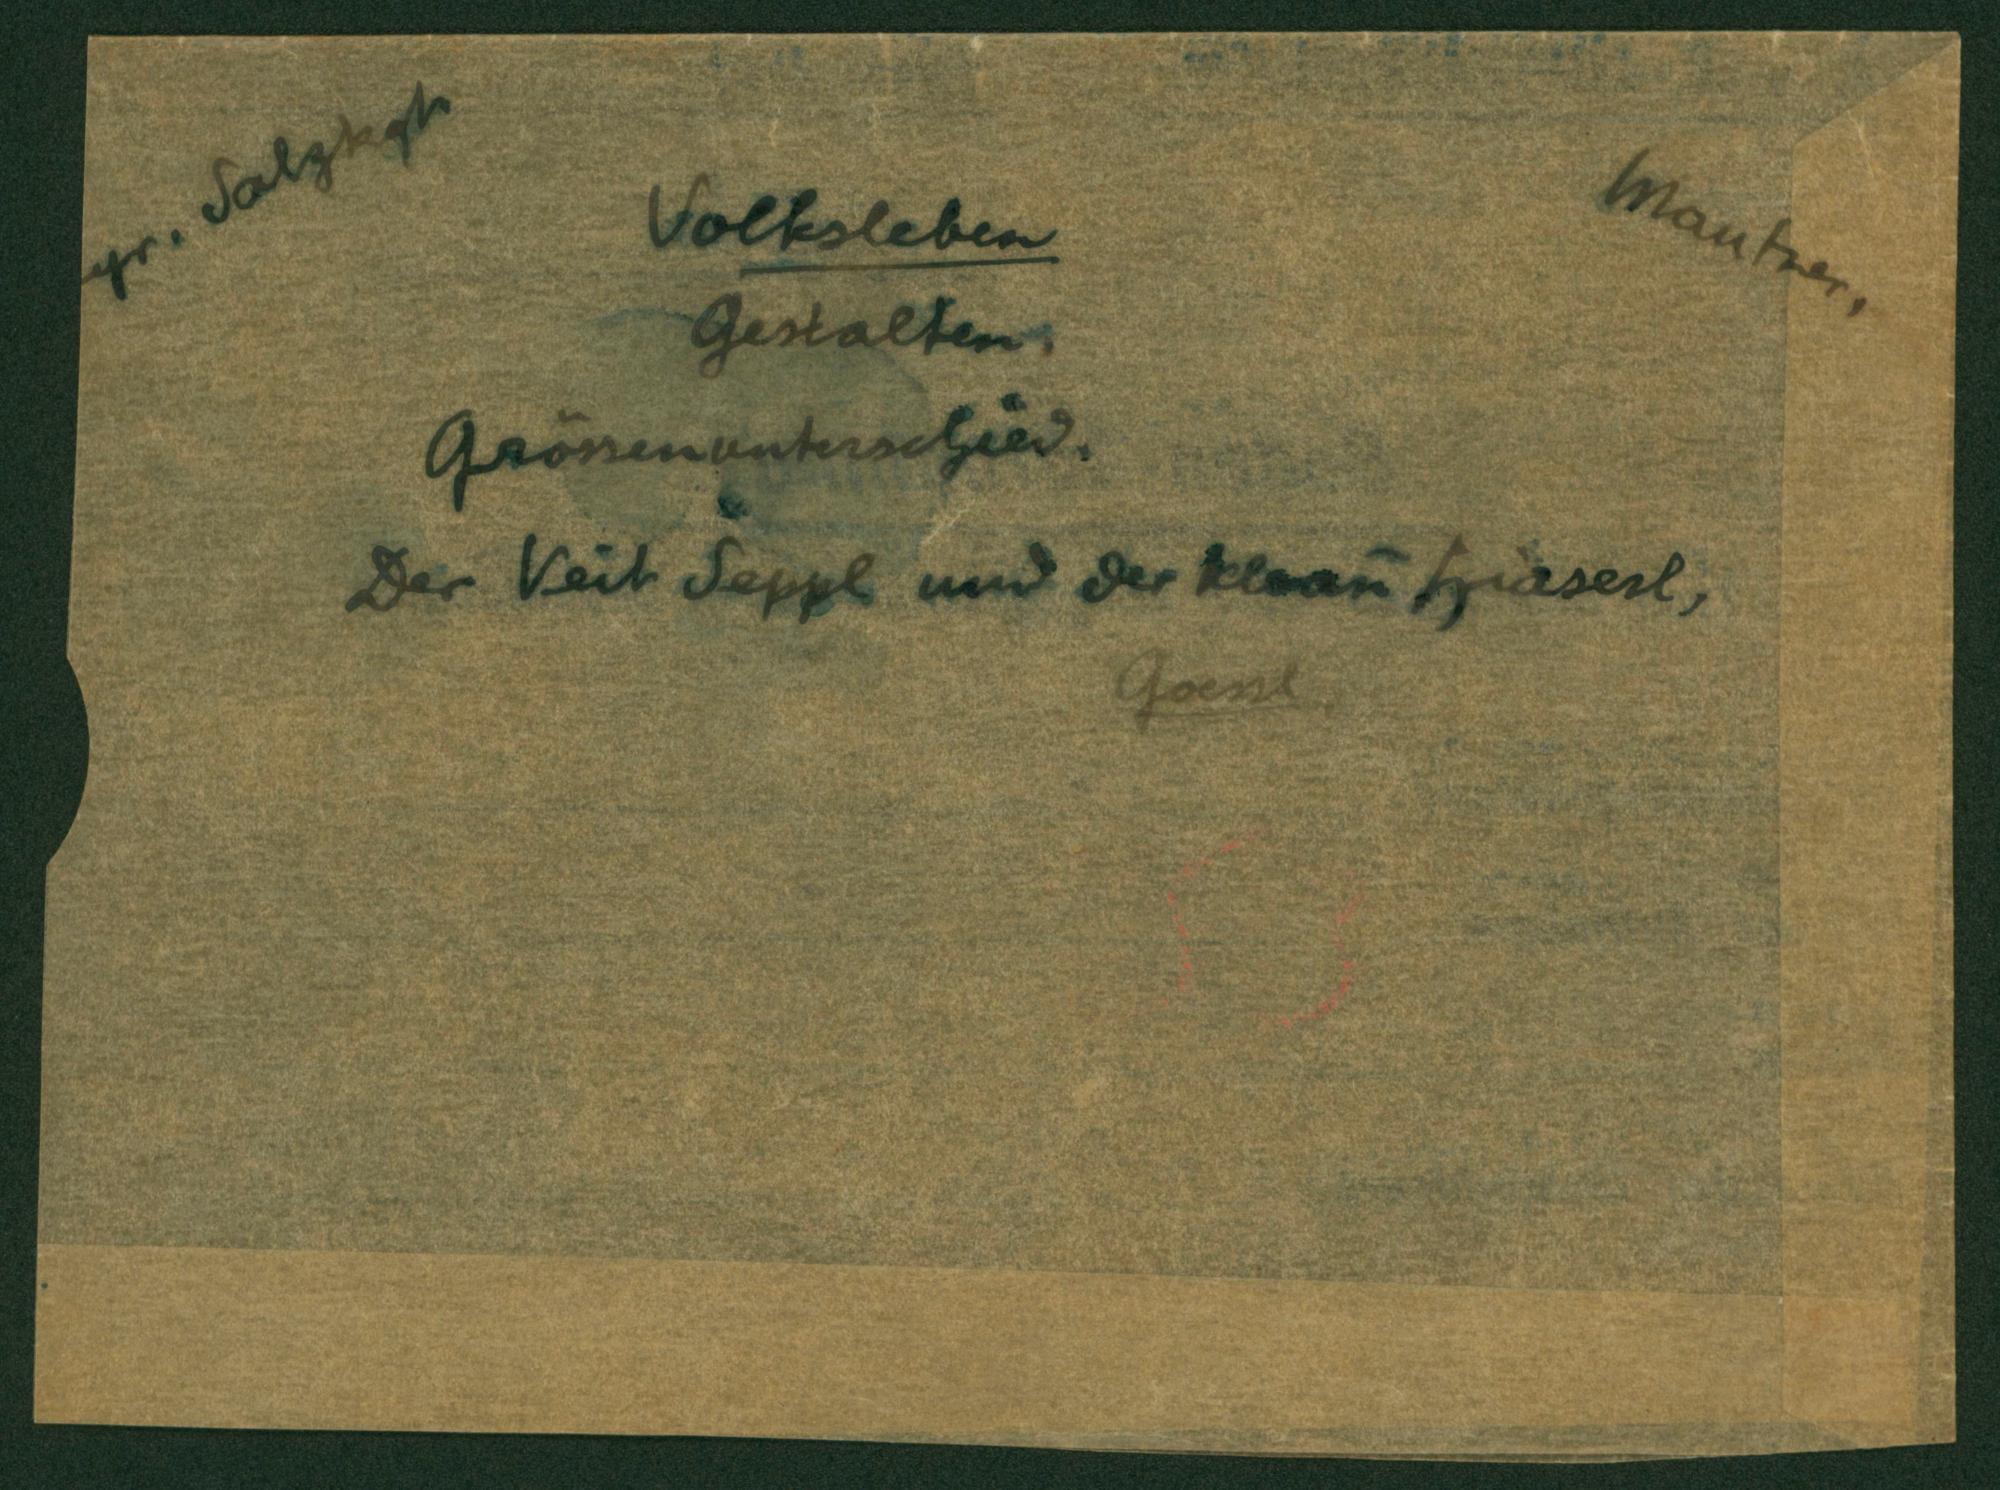 gr. Salzkgt
Mautner,
Volksleben
Gestalten.
Grössenunterschied.
Der Veit Seppl und der kloan̄ Hiaserl,
Goessl